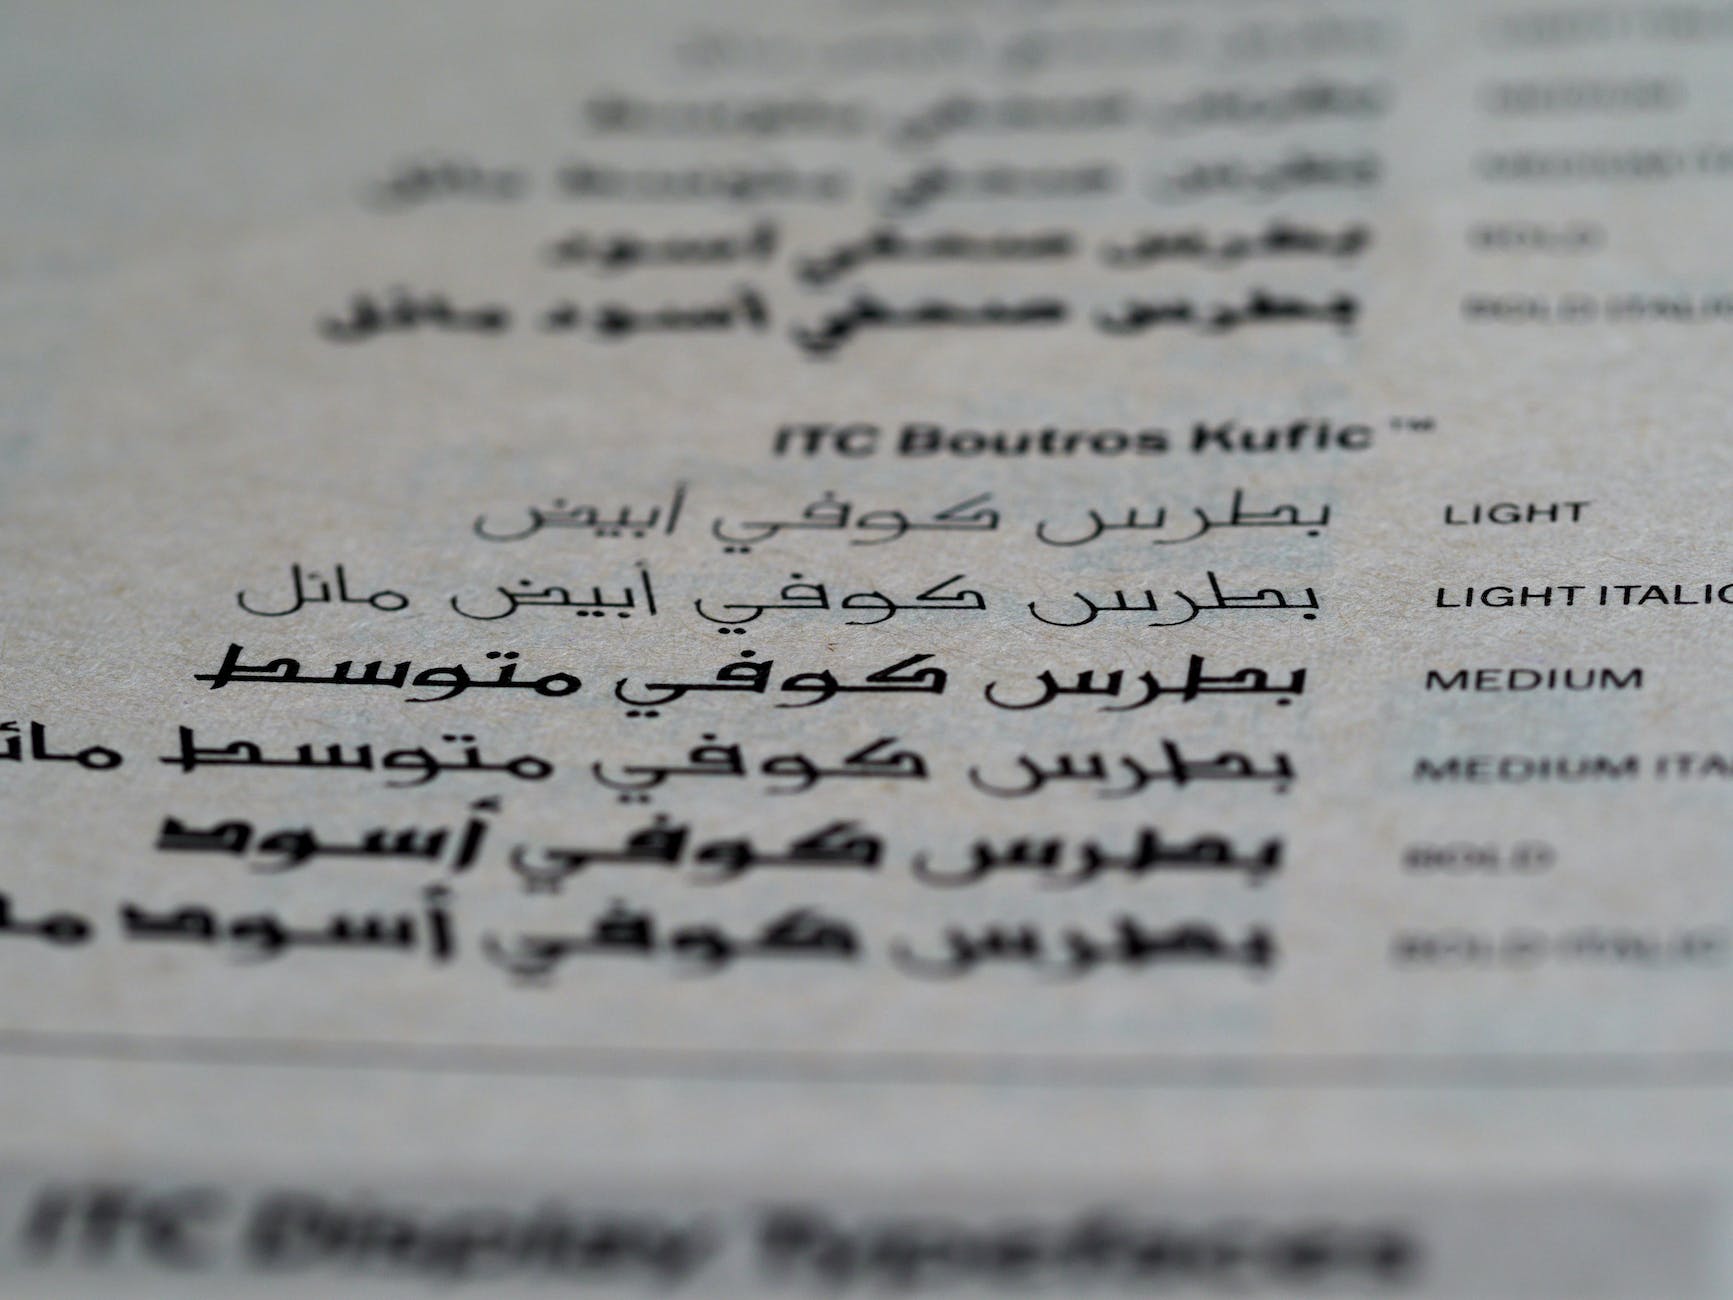 بطرس صحفي
بطرس صحفي
بطرس صحفي أسود BOLD
بطرس صحفي أسود مائل BOLD ITALI
ITC Boutros Kufic™
بطرس كوفي أبيض LIGHT
بطرس كوفي أبيض مائل LIGHT ITALIC
بطرس كوفي متوسط MEDIUM
بطرس كوفي متوسط مائ MEDIUM ITA
بطرس كوفي أسود BOLD
بطرس كوفي أسود ما BOLD ITALIC
ITC Display Typefaces